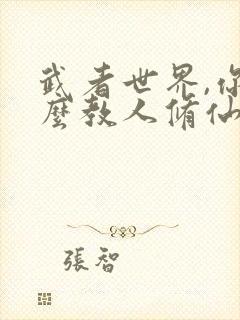 武者世界,你
麼教人修仙
張智